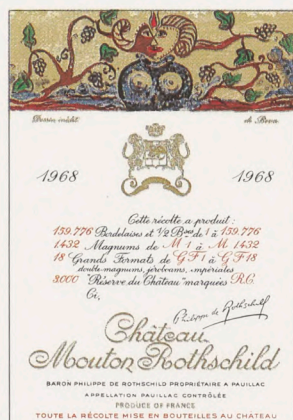 Dessin inédit de Bona
1968 1968
Cette récolte a produit :
159.776 Bordelaises et 1/2 Bses de 1 à 159.776
1432 Magnums de M 1 à M 1432
18 Grands Formats de G F 1 à G F 18
double-magnums, jéroboams, impériales
3000 "Réserve du Château" marquées R.C.
Ci,
Philippe de Rothschild
Château
Mouton Rothschild
BARON PHILIPPE DE ROTHSCHILD PROPRIÉTAIRE A PAUILLAC
APPELLATION PAUILLAC CONTRÔLÉE
PRODUCE OF FRANCE
TOUTE LA RÉCOLTE MISE EN BOUTEILLES AU CHÂTEAU